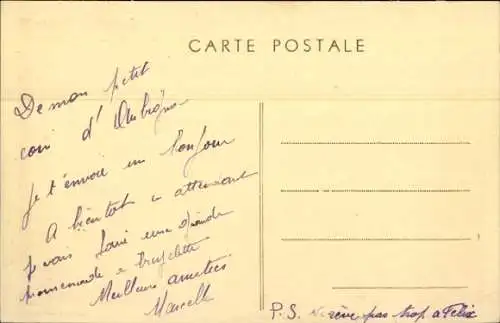 CARTE POSTALE
De mon petit
coin d'Aubigna
je t'envoie un bonjour
A bientôt en attendant
je vais faire une grande
promenade a bicyclette
Meilleurs amities
Marcelle
P.S. pas trop a Félix